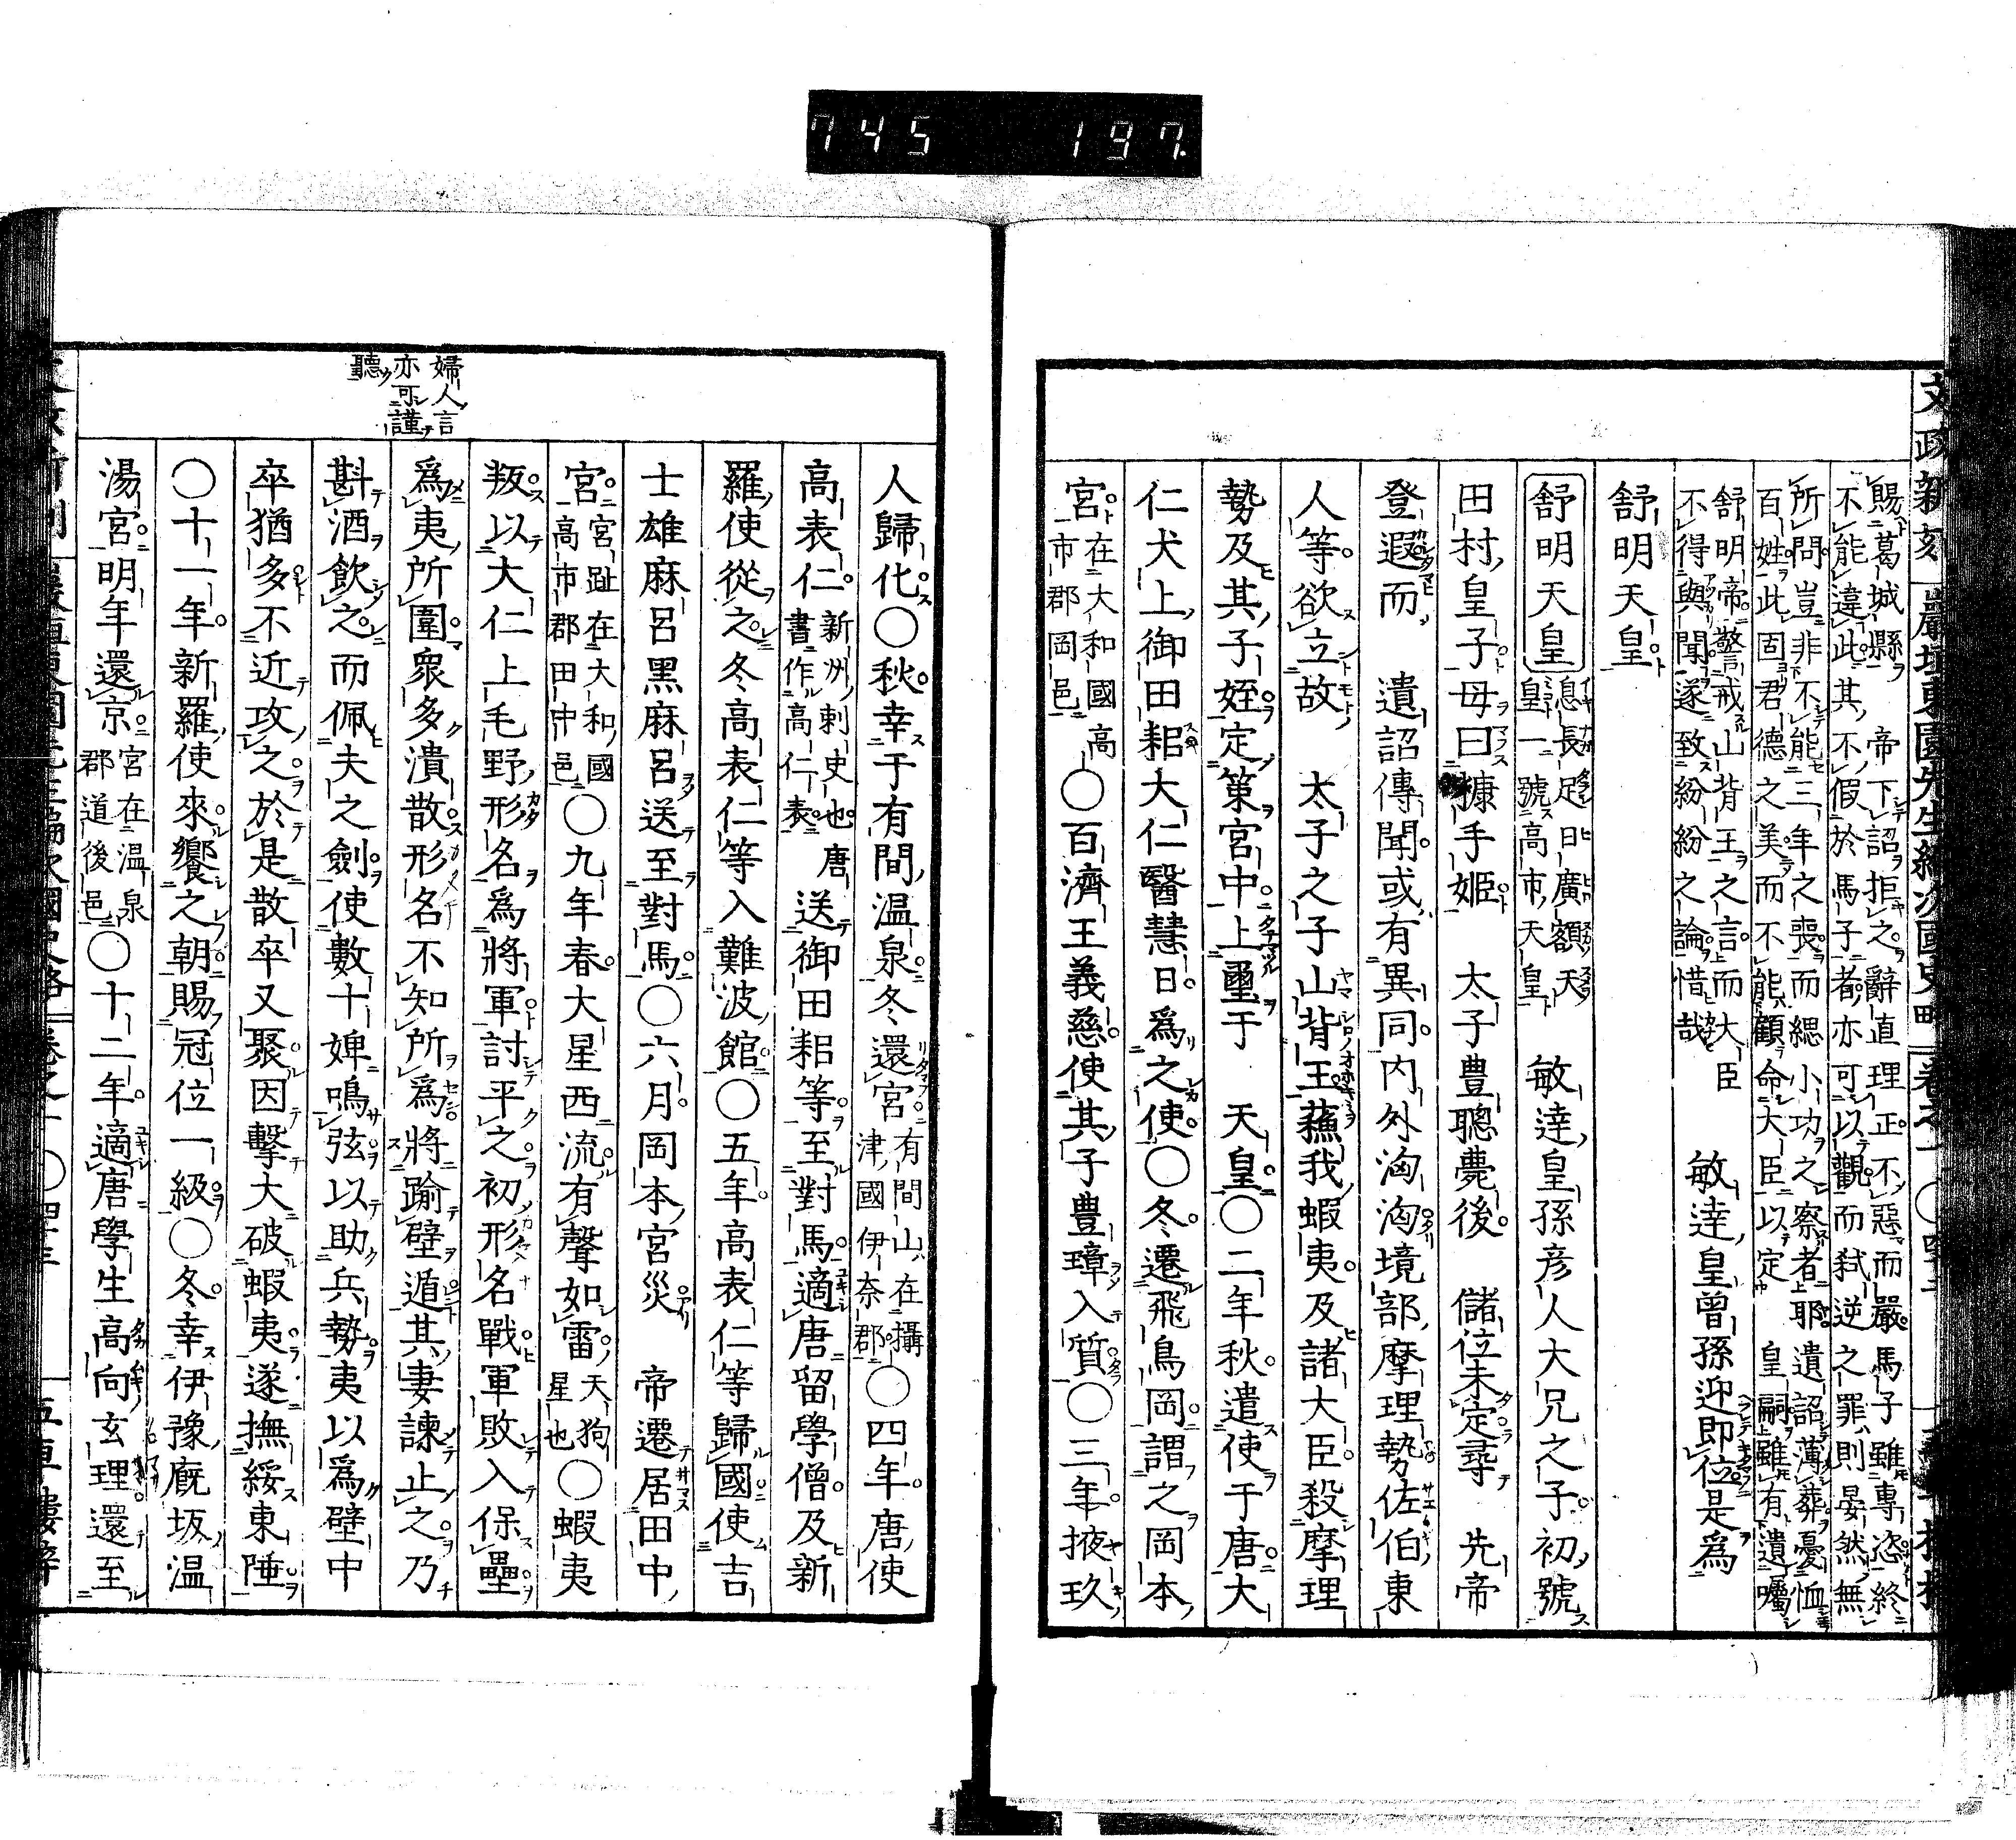 745 197
賜葛城縣 帝下詔拒之辭直理正不惡而嚴馬子雖專恣終
不能違此其不假於馬子者亦可以觀而弑逆之罪則晏然無
所問豈非不能三年之喪而緦小功之察者耶遺詔薄葬憂恤
百姓此固君德之美而不能顧命大臣以定 皇嗣雖有遺囑
舒明帝警戒山背王之言而大臣
不得與聞遂致紛紛之論惜哉
敏達皇曾孫迎即位是為
舒明天皇
舒明天皇 息長足日廣額天皇一號高市天皇 敏達皇孫彦人大兄之子初號
田村皇子母曰糠手姬 太子豊聰薨後 儲位未定尋 先帝
登遐而 遺詔傳聞或有異同内外洶洶境部摩理勢佐伯東
人等欲立故 太子之子山背王蘓我蝦夷及諸大臣殺摩理
勢及其子姪定策宮中上璽于 天皇〇二年秋遣使于唐大
仁犬上御田耜大仁醫慧日爲之使〇冬遷飛鳥岡謂之岡本
宮在大和國高市郡岡邑〇百濟王義慈使其子豊璋入質〇三年掖玖
人歸化〇秋幸于有間温泉冬還宮有間山在攝津國伊奈郡〇四年唐使
高表仁新洲刺史也唐書作高仁表送御田耜等至對馬適唐留學僧及新
羅使從之冬高表仁等入難波館〇五年高表仁等歸國使吉
士雄麻呂黑麻呂送至對馬〇六月岡本宮災 帝遷居田中
宮宮趾在大和國高市郡田中邑〇九年春大星西流有聲如雷天狗星也〇蝦夷
叛以大仁上毛野形名爲將軍討平之初形名戰軍敗入保壘
爲夷所圍衆多潰散形名不知所爲將踰壁遁其妻諫止之乃
斟酒飲之而佩夫之劍使數十婢鳴弦以助兵勢夷以爲壁中
卒猶多不近攻之於是散卒又聚因擊大破蝦夷遂撫綏東陲
〇十一年新羅使來饗之朝賜冠位一級〇冬幸伊豫厩坂温
湯宮明年還京宮在温泉郡道後邑〇十二年適唐學生高向玄理還至
婦人言
亦可謹
聽